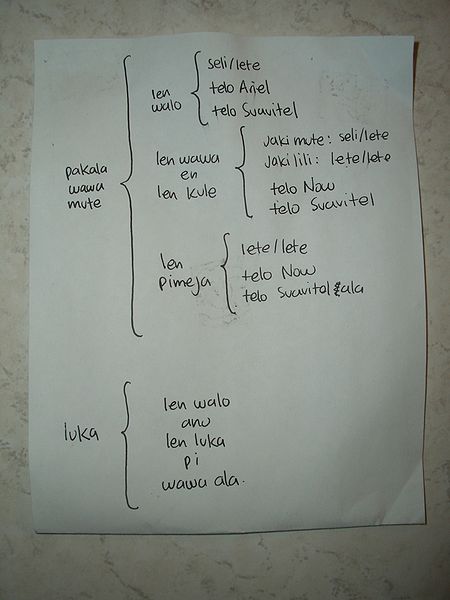 pakala
wawa
mute
len
walo
seli/lete
telo Ariel
telo Suavitel
len wawa
en
len kule
jaki mute: seli/lete
jaki lili: lete/lete
telo Now
telo Suavitel
len
pimeja
lete/lete
telo Now
telo Suavitel ala
luka
len walo
anu
len luka
pi
wawa ala.